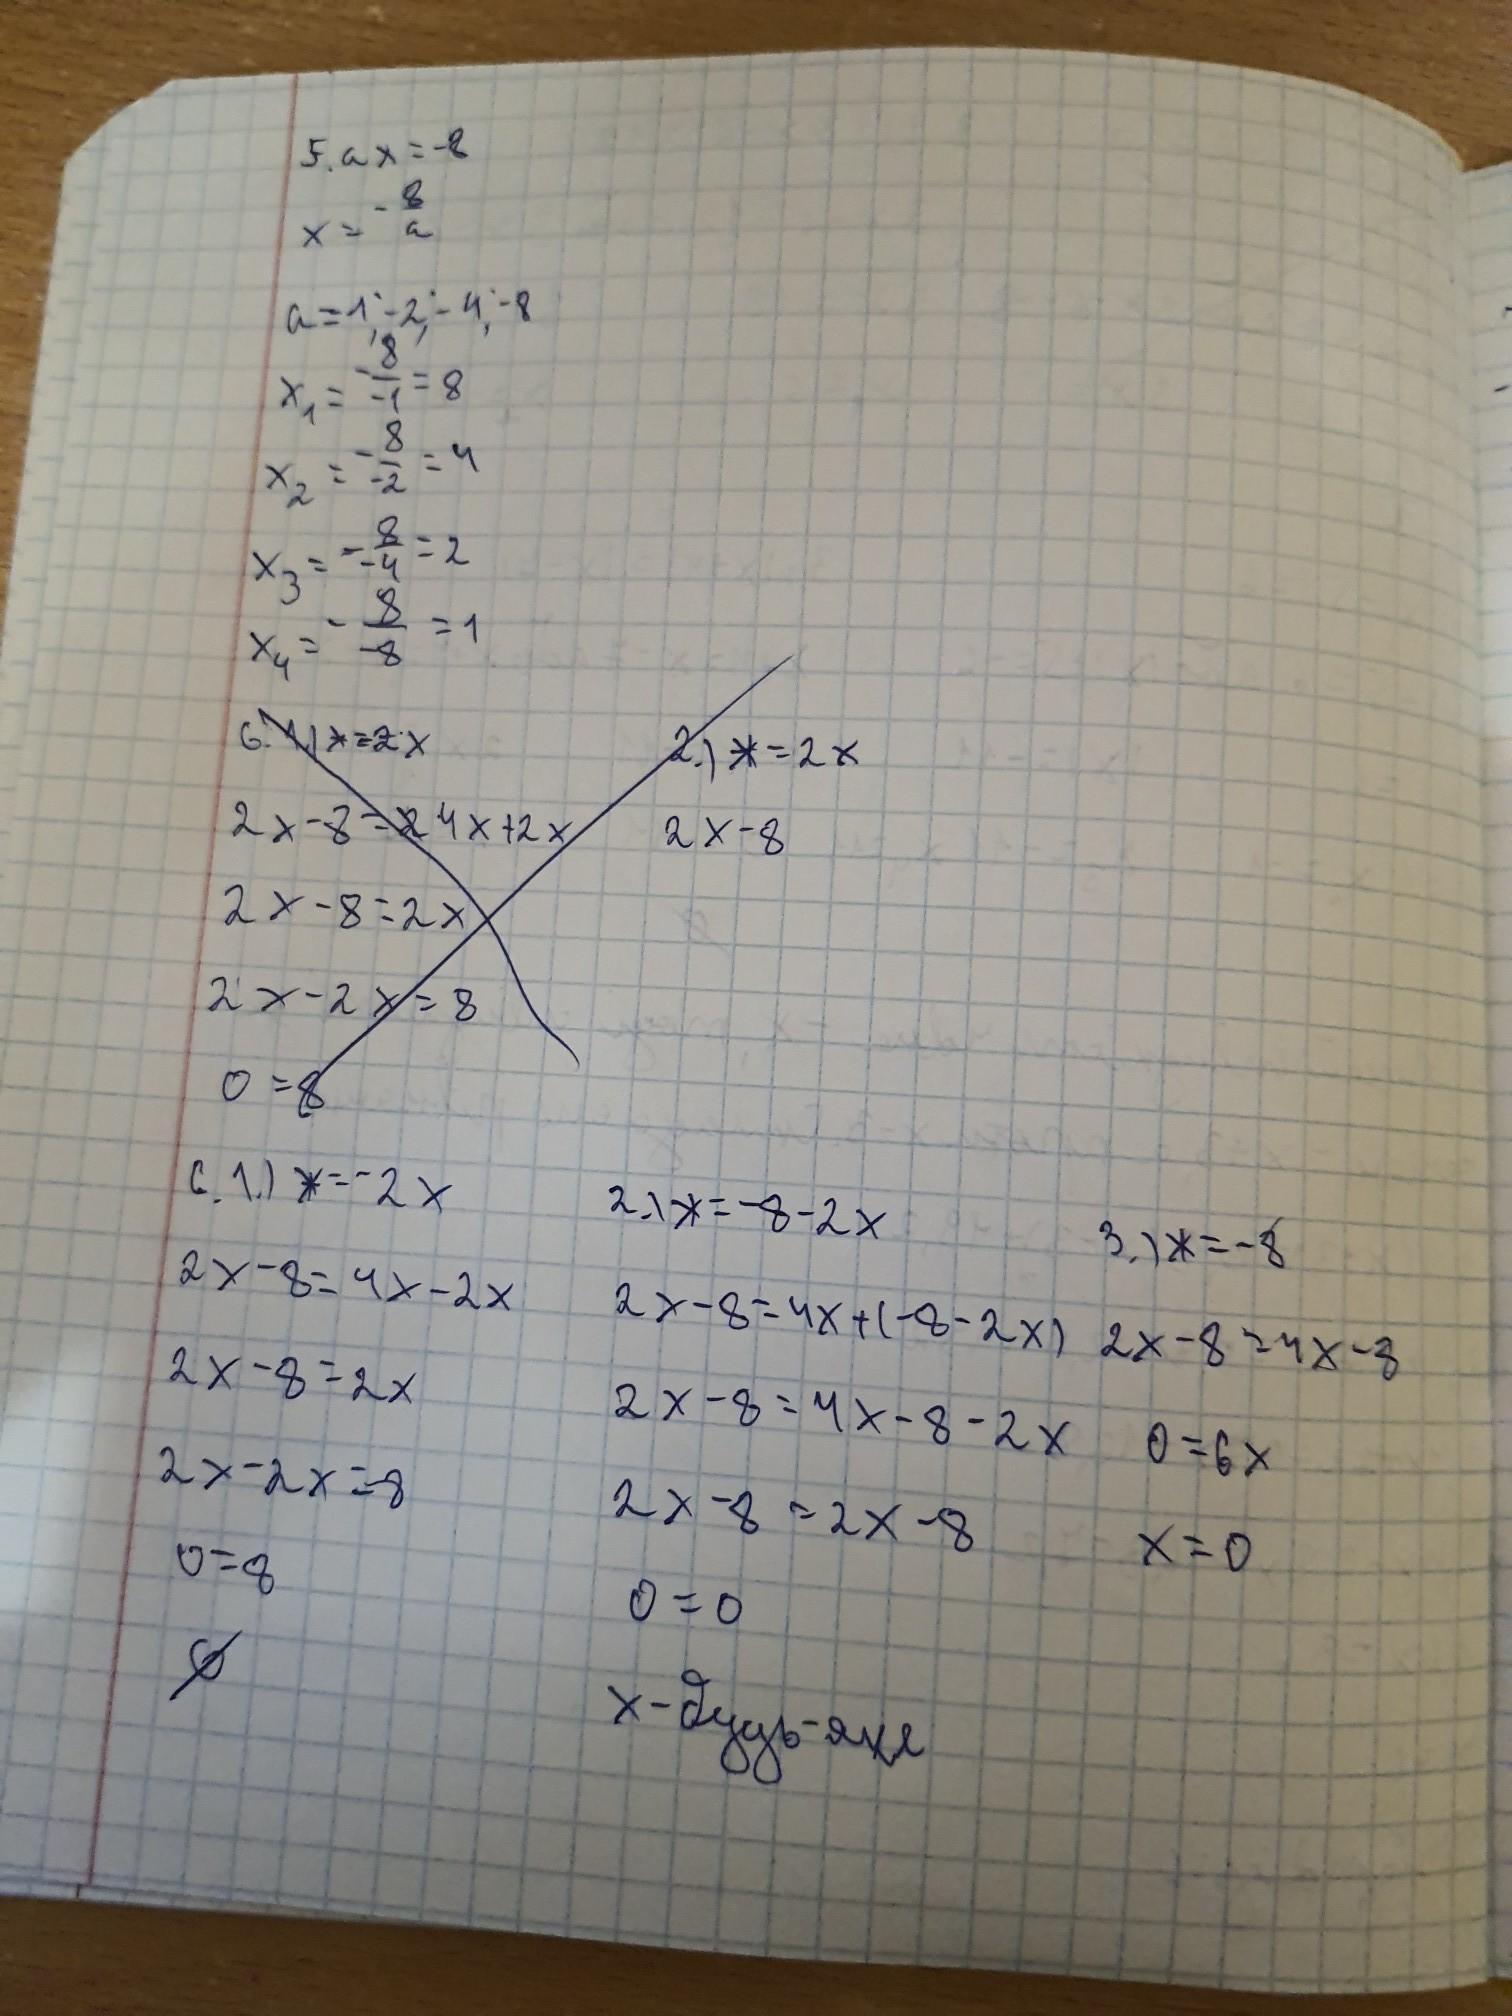 5. ax = -8
x = -8/a
a = 1; -2; -4; -8
x₁ = -8/-1 = 8
x₂ = -8/-2 = 4
x₃ = -8/-4 = 2
x₄ = -8/-8 = 1
6. 1.) * = 2x
2x - 8 = 4x + 2x
2x - 8 = 2x
2x - 2x = 8
0 = 8
2.) * = 2x
2x - 8
6. 1.) * = -2x
2x - 8 = 4x - 2x
2x - 8 = 2x
2x - 2x = 8
0 = 8
∅
2.) * = -8 - 2x
2x - 8 = 4x + (-8 - 2x)
2x - 8 = 4x - 8 - 2x
2x - 8 = 2x - 8
0 = 0
x - будь-яке
3.) * = -8
2x - 8 = 4x - 8
0 = 6x
x = 0